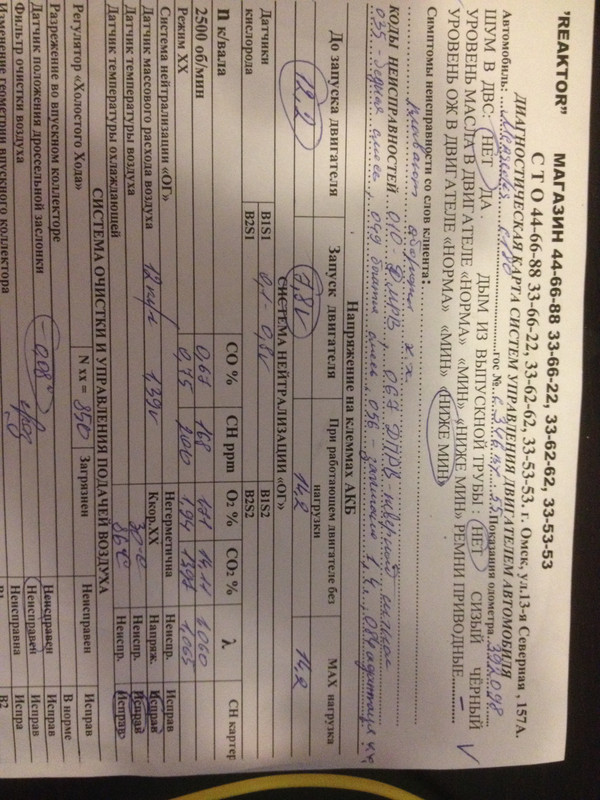 "REAKTOR" МАГАЗИН 44-66-88 33-66-22, 33-62-62, 33-53-53
С Т О 44-66-88 33-66-22, 33-62-62, 33-53-53. г. Омск, ул.13-я Северная , 157А.
ДИАГНОСТИЧЕСКАЯ КАРТА СИСТЕМ УПРАВЛЕНИЯ ДВИГАТЕЛЕМ АВТОМОБИЛЯ
Автомобиль: Mercedes C180 гос № Показания одометра. 392098
ШУМ В ДВС: НЕТ ДА . ДЫМ ИЗ ВЫПУСКНОЙ ТРУБЫ : НЕТ СИЗЫЙ ЧЁРНЫЙ
УРОВЕНЬ МАСЛА В ДВИГАТЕЛЕ «НОРМА» «МИН» «НИЖЕ МИН» РЕМНИ ПРИВОДНЫЕ
УРОВЕНЬ ОЖ В ДВИГАТЕЛЕ «НОРМА» «МИН» «НИЖЕ МИН»
Симптомы неисправности со слов клиента:
плавают обороты х.х.
КОДЫ НЕИСПРАВНОСТЕЙ 010 - ДМРВ , 067 ДПРВ неверный сигнал
035 - бедная смесь , 049 богатая смесь , 056 -
Напряжение на клеммах АКБ
До запуска двигателя Запуск двигателя При работающем двигателе без нагрузки MAX нагрузка
12,2 7,8v 14,2 14,2
СИСТЕМА НЕЙТРАЛИЗАЦИИ «ОГ»
Датчики кислорода B1S1 0,1 - 0,9v B1S2
B2S1 B2S2
n к/вала CO % CH ppm O₂ % CO₂ % λ CH картер
2500 об/мин 0,67 168 14,11 1,060
Режим XX 0,75 200 1,94 1,065
Система нейтрализации «ОГ» Негерметична Неиспр. Исправ
Датчик массового расхода воздуха 1,39v Ккор.ХХ Напряж. Исправ
Датчик температуры воздуха Неиспр. Исправ
Датчик температуры охлаждающей 86°C Неиспр. Исправ
СИСТЕМА ОЧИСТКИ И УПРАВЛЕНИЯ ПОДАЧЕЙ ВОЗДУХА
Регулятор «Холостого Хода» N xx = 850 Загрязнен Неисправен Исправ
Разрежение во впускном коллекторе В норме
Датчик положения дроссельной заслонки Неисправен Исправ
Фильтр очистки воздуха Неисправен Исправ
Изменение геометрии впускного коллектора Неисправна Испра